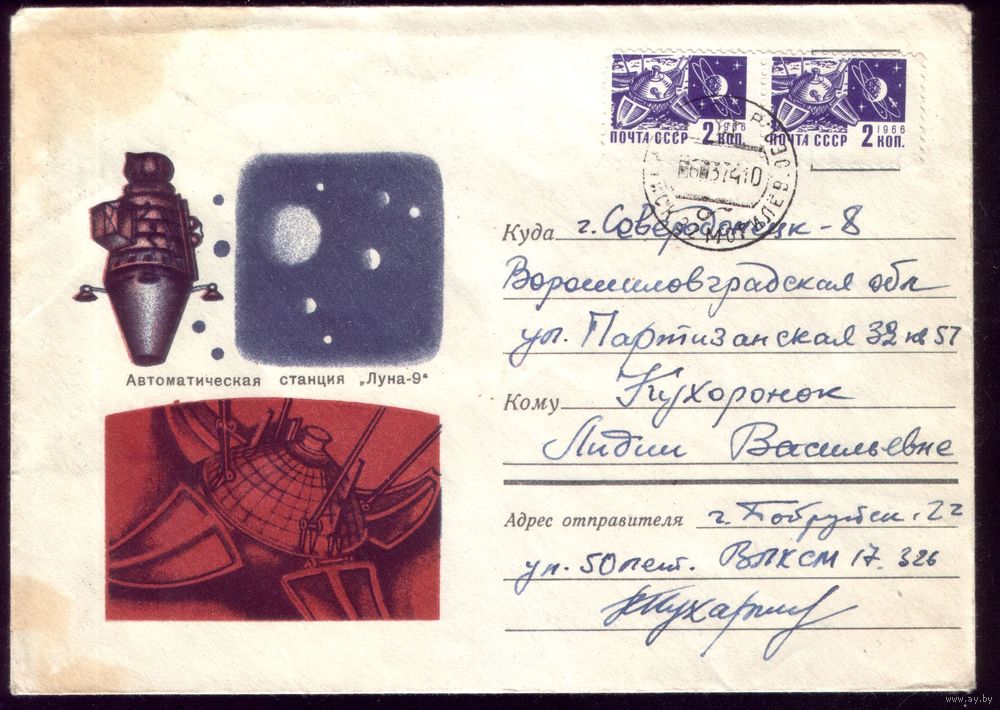 1966
ПОЧТА СССР 2 КОП.
1966
ПОЧТА СССР 2 КОП.
Куда г. Северодонецк-8
Ворошиловградская обл
ул. Партизанская 32 кв 57
Кому Кухоронок
Лидии Васильевне
Автоматическая станция „Луна-9"
Адрес отправителя г. Бобруйск.
ул. 50 лет. ВЛКСМ 17. 326
www.ay.by